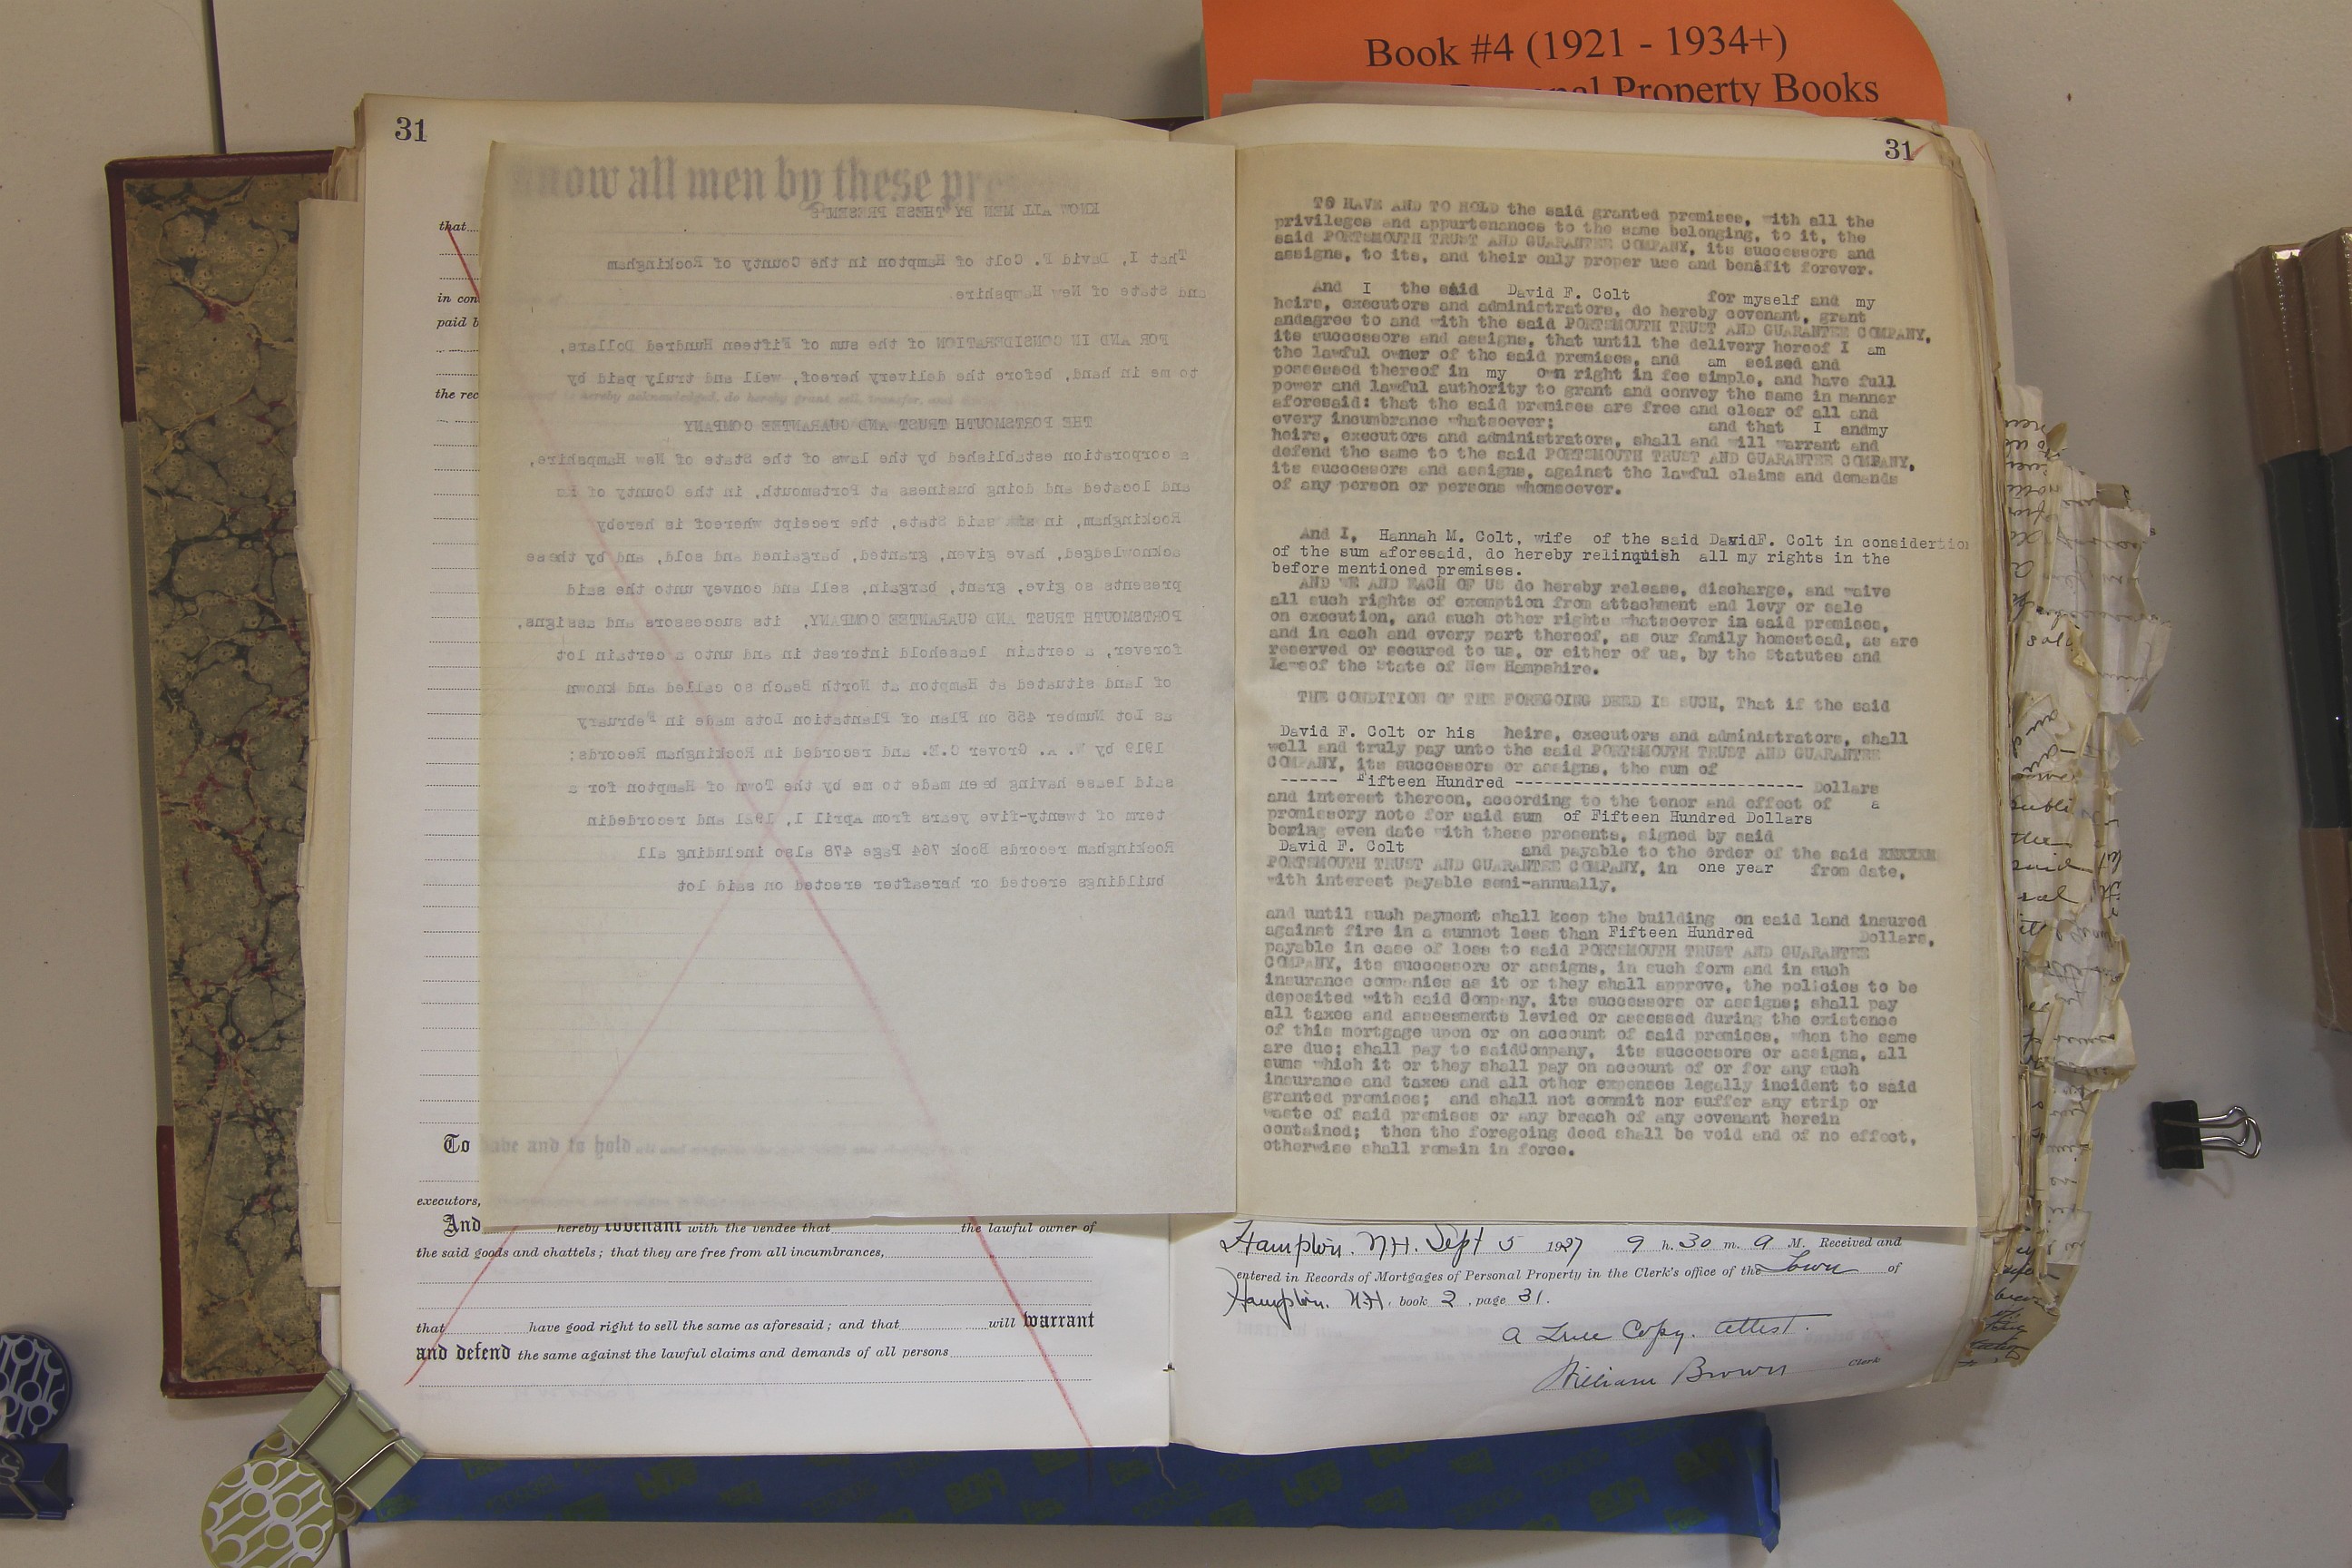 Book #4 (1921 - 1934+)
Personal Property Books
31
31
Know all men by these pre
that
in con
paid b
the rec
KNOW ALL MEN BY THESE PRESENTS
That I, David F. Colt of Hampton in the County of Rockingham
and State of New Hampshire.
FOR AND IN CONSIDERATION of the sum of Fifteen Hundred Dollars,
to me in hand, before the delivery hereof, well and truly paid by
THE PORTSMOUTH TRUST AND GUARANTEE COMPANY
a corporation established by the laws of the State of New Hampshire,
and located and doing business at Portsmouth, in the County of
Rockingham, in said State, the receipt whereof is hereby
acknowledged, have given, granted, bargained and sold, and by these
presents so give, grant, bargain, sell and convey unto the said
PORTSMOUTH TRUST AND GUARANTEE COMPANY, its successors and assigns,
forever, a certain leasehold interest in and unto a certain lot
of land situated at Hampton at North Beach so called and known
as Lot Number 455 on Plan of Plantation Lots made in February
1919 by W. A. Grover C.E. and recorded in Rockingham Records;
said lease having been made to me by the Town of Hampton for a
term of twenty-five years from April 1, 1921 and recordedin
Rockingham records Book 764 Page 478 also including all
buildings erected or hereafter erected on said lot
To have and to hold
executors,
And hereby covenant with the vendee that the lawful owner of
the said goods and chattels; that they are free from all incumbrances,
that have good right to sell the same as aforesaid; and that will warrant
and defend the same against the lawful claims and demands of all persons
TO HAVE AND TO HOLD the said granted premises, with all the
privileges and appurtenances to the same belonging, to it, the
said PORTSMOUTH TRUST AND GUARANTEE COMPANY, its successors and
assigns, to its, and their only proper use and benefit forever.
And I the said David F. Colt for myself and my
heirs, executors and administrators, do hereby covenant, grant
andagree to and with the said PORTSMOUTH TRUST AND GUARANTEE COMPANY,
its successors and assigns, that until the delivery hereof I am
the lawful owner of the said premises, and am seised and
possessed thereof in my own right in fee simple, and have full
power and lawful authority to grant and convey the same in manner
aforesaid: that the said premises are free and clear of all and
every incumbrance whatsoever; and that I andmy
heirs, executors and administrators, shall and will warrant and
defend the same to the said PORTSMOUTH TRUST AND GUARANTEE COMPANY,
its successors and assigns, against the lawful claims and demands
of any person or persons whomsoever.
And I, Hannah M. Colt, wife of the said DavidF. Colt in considertion
of the sum aforesaid, do hereby relinquish all my rights in the
before mentioned premises.
AND WE AND EACH OF US do hereby release, discharge, and waive
all such rights of exemption from attachment and levy or sale
on execution, and such other rights whatsoever in said premises,
and in each and every part thereof, as our family homestead, as are
reserved or secured to us, or either of us, by the Statutes and
Lawsof the State of New Hampshire.
THE CONDITION OF THE FOREGOING DEED IS SUCH, That if the said
David F. Colt or his heirs, executors and administrators, shall
well and truly pay unto the said PORTSMOUTH TRUST AND GUARANTEE
COMPANY, its successors or assigns, the sum of
------ Fifteen Hundred ------------------------------ Dollars
and interest thereon, according to the tenor and effect of a
promissory note for said sum of Fifteen Hundred Dollars
boring even date with these presents, signed by said
David F. Colt and payable to the order of the said
PORTSMOUTH TRUST AND GUARANTEE COMPANY, in one year from date,
with interest payable semi-annually,
and until such payment shall keep the building on said land insured
against fire in a sumnot less than Fifteen Hundred Dollars,
payable in case of loss to said PORTSMOUTH TRUST AND GUARANTEE
COMPANY, its successors or assigns, in such form and in such
insurance companies as it or they shall approve, the policies to be
deposited with said Company, its successors or assigns; shall pay
all taxes and assessments levied or assessed during the existence
of this mortgage upon or on account of said premises, when the same
are due; shall pay to saidCompany, its successors or assigns, all
sums which it or they shall pay on account of or for any such
insurance and taxes and all other expenses legally incident to said
granted premises; and shall not commit nor suffer any strip or
waste of said premises or any breach of any covenant herein
contained; then the foregoing deed shall be void and of no effect,
otherwise shall remain in force.
Hampton. N.H. Sept 5 1927 9 h. 30 m. a M. Received and
entered in Records of Mortgages of Personal Property in the Clerk's office of the Town of
Hampton. N.H., book 2, page 31.
A True Copy. Attest.
William Brown Clerk